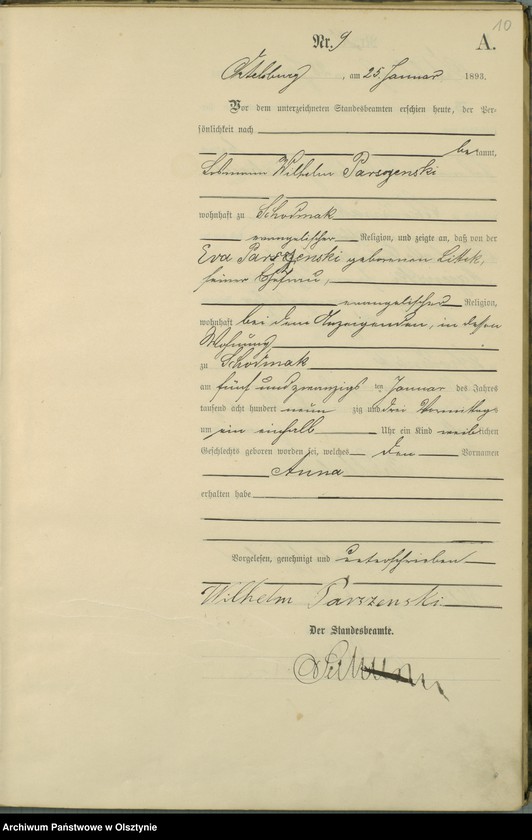 10
Nr. 9 A.
Ortelsburg, am 25. Januar 1893.
Vor dem unterzeichneten Standesbeamten erschien heute, der Per-
sönlichkeit nach
bekannt,
Losmann Wilhelm Parszenski
wohnhaft zu Schodmak
evangelischer Religion, und zeigte an, daß von der
Eva Parszenski geborenen Littek,
seiner Ehefrau,
evangelischer Religion,
wohnhaft bei dem Anzeigenden, in dessen
Wohnung
zu Schodmak
am fünf und zwanzigs ten Januar des Jahres
tausend acht hundert neun zig und drei Vormittags
um ein einhalb Uhr ein Kind weiblichen
Geschlechts geboren worden sei, welches den Vornamen
Anna
erhalten habe
Vorgelesen, genehmigt und unterschrieben
Wilhelm Parszenski
Der Standesbeamte.
Archiwum Państwowe w Olsztynie